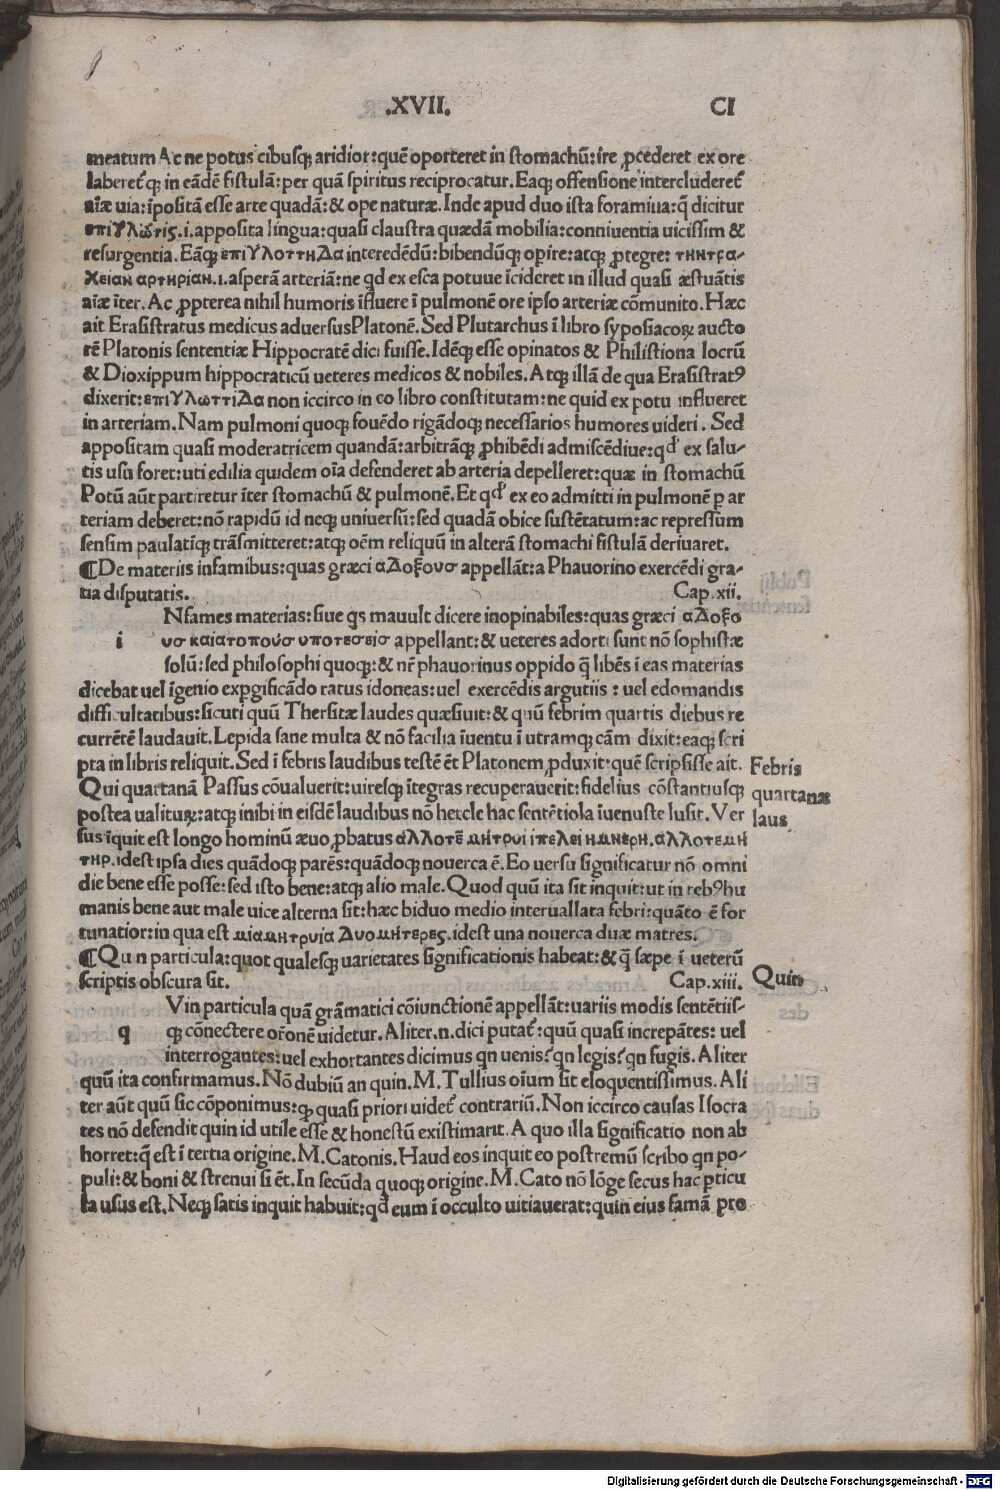 .XVII.
CI
meatum Ac ne potus cibusq; aridior:quē oporteret in stomachū:ire ꝓcederet ex ore
laberet᷑q; in eādē fistulā:per quā spiritus reciprocatur.Eaq; offensione intercluderet᷑
aīæ uia:īpositā esse arte quadā:& ope naturæ.Inde apud duo ista foramina:q̄ dicitur
επιγλωτις.i.apposita lingua:quasi claustra quædā mobilia:conniuentia uicissim &
resurgentia.Eāq; επιγλοττηΔα interedēdū:bibendūq; opire:atq; ꝓtegre: τηντρα-
χειαν αρτηριαν.i.asperā arteriā:ne qd ex esca potuue īcideret in illud quasi æstuātis
aīæ īter.Ac ꝓpterea nihil humoris īfluere ī pulmonē ore ipso arteriæ cōmunito.Hæc
ait Erasistratus medicus aduersusPlatonē.Sed Plutarchus ī libro syposiacoꝝ aucto
rē Platonis sententiæ Hippocratē dici fuisse.Idēq; esse opinatos & Philistiona locrū
& Dioxippum hippocraticū ueteres medicos & nobiles.Atq; illā de qua Erasistratꝰ
dixerit:επιγλωττιΔα non iccirco in eo libro constitutam:ne quid ex potu influeret
in arteriam.Nam pulmoni quoq; fouēdo rigādoq; necessarios humores uideri.Sed
appositam quasi moderatricem quandā:arbitrāq; ꝓhibēdi admiscēdiue:qd' ex salu-
tis usū foret:uti edilia quidem oīa defenderet ab arteria depelleret:quæ in stomachū
Potū aūt partiretur īter stomachū & pulmonē.Et qd' ex eo admitti in pulmonē p̱ ar
teriam deberet:nō rapidū id neq; uniuersū:sed quadā obice sustētatum:ac repressum
sensim paulatīq; trāsmitteret:atq; oēm reliquū in alterā stomachi fistulā deriuaret.
¶De materiis infamibus:quas græci αΔοξουσ appellāt:a Phauorino exercēdi gra-
tia disputatis. Cap.xii.
Nfames materias:siue q̄s mauult dicere inopinabiles:quas græci αΔοξο
i υσ καιατοπουσ υποτεσεισ appellant:& ueteres adorti sunt nō sophistæ
solū:sed philosophi quoq;:& nr̄ phauorinus oppido q̄ libēs ī eas materias
dicebat uel īgenio exp̱gificādo ratus idoneas:uel exercēdis argutiis : uel edomandis
difficultatibus:sicuti quū Thersitæ laudes quæsiuit:& quū febrim quartis diebus re
currētē laudauit.Lepida sane multa & nō facilia īuentu ī utramq; cām dixit:eaq; scri
pta in libris reliquit.Sed ī febris laudibus testē ēt Platonem ꝓduxit:quē scripsisse ait.
Qui quartanā Passus cōualuerit:uiresq; ītegras recuperauerit:fidelius cōstantiusq;
postea ualituꝝ:atq; inibi in eisdē laudibus nō hercle hac sentētiola īuenuste lusit.Ver
sus īquit est longo hominū æuo ꝓbatus αλλοτε̄ μητρυι ιπελει ημνερη.αλλοτεμη
τηρ.idest ipsa dies quādoq; parēs:quādoq; nouerca ē.Eo uersu significatur nō omni
die bene esse posse:sed isto bene:atq; alio male.Quod quū ita sit inquit:ut in rebꝰhu
manis bene aut male uice alterna sit:hæc biduo medio interuallata febri:quāto ē for
tunatior:in qua est μιαμητρυία Δυομητερες.idest una nouerca duæ matres.
¶Qu n particula:quot qualesq; uarietates significationis habeat:& q̄ sæpe ī ueterū
scriptis obscura sit. Cap.xiii.
Vin particula quā grāmatici cōiunctionē appellāt:uariis modis sentētiis-
q q; cōnectere or̄onē uidetur.Aliter.n.dici putat᷑:quū quasi increpātes: uel
interrogantes:uel exhortantes dicimus qn uenis?qn legis?qn fugis.Aliter
quū ita confirmamus.Nō dubiū an quin.M.Tullius oīum sit eloquentissimus.Ali
ter aūt quū sic cōponimus:q; quasi priori uidet᷑ contrariū.Non iccirco causas Isocra
tes nō defendit quin id utile esse & honestū existimarit.A quo illa significatio non ab
horret:q̄ est ī tertia origine.M.Catonis.Haud eos inquit eo postremū scribo qn po-
puli:& boni & strenui si ēt.In secūda quoq; origine.M.Cato nō lōge secus hac p̱ticu
la usus est.Neq; satis inquit habuit:qd eum ī occulto uitiauerat:quin eius famā pro
Febris
quartanæ
laus
Quin
Digitalisierung gefördert durch die Deutsche Forschungsgemeinschaft - DFG